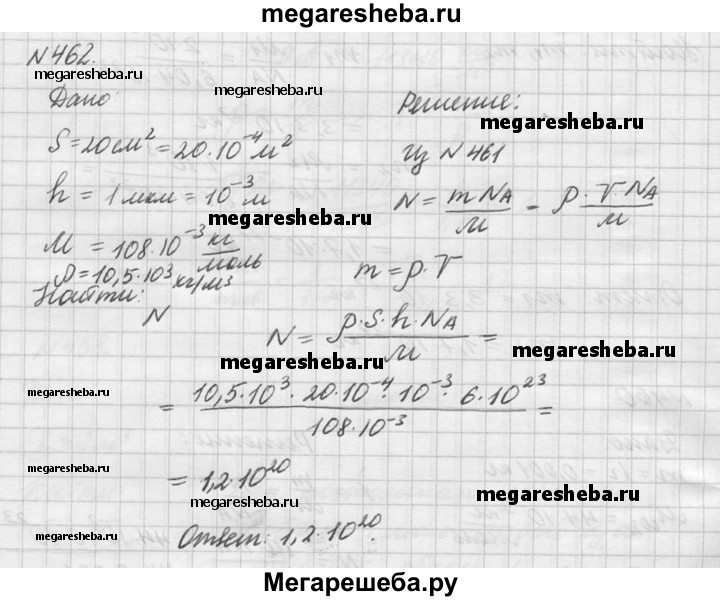 megaresheba.ru
N 462.
megaresheba.ru
Дано:
Решение:
megaresheba.ru
S = 20 см² = 20·10⁻⁴ м²
Из N 461
h = 1 мкм = 10⁻³ м
megaresheba.ru
N = m N_A / M = ρ · V · N_A / M
megaresheba.ru
M = 108·10⁻³ кг/моль
ρ = 10,5·10³ кг/м³
m = ρ·V
Найти:
N
N = ρ·S·h·N_A / M =
megaresheba.ru
megaresheba.ru
megaresheba.ru
= 10,5·10³ · 20·10⁻⁴ · 10⁻³ · 6·10²³ / 108·10⁻³ =
megaresheba.ru
= 1,2·10²⁰
megaresheba.ru
megaresheba.ru
megaresheba.ru
Ответ: 1,2·10²⁰.
Мегарешеба.ру